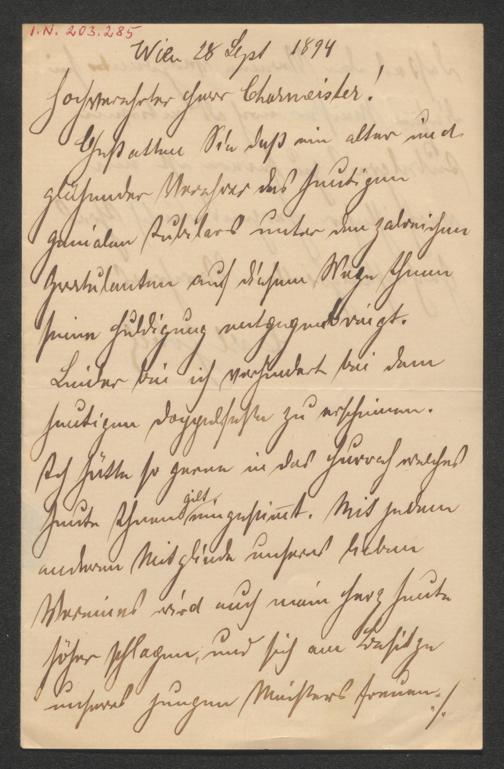 I.N. 203.285
Wien 28 Sept 1894
Hochverehrter Herr Chormeister!
Gestatten Sie daß ein alter und
glühender Verehrer des heutigen
genialen Jubilars unter den zalreichen
Gratulanten auf diesem Wege Ihnen
seine Huldigung entgegenbringt.
Leider bin ich verhindert bei dem
heutigen Doppelfeste zu erscheinen.
Ich hätte so gerne in das Hurrah welches
heute Ihnen gilt, eingestimmt. Mit jedem
anderen Mitgliede unseres lieben
Vereines wird auch mein Herz heute
höher schlagen, und sich am Besitze
unseres jungen Meisters freuen./.